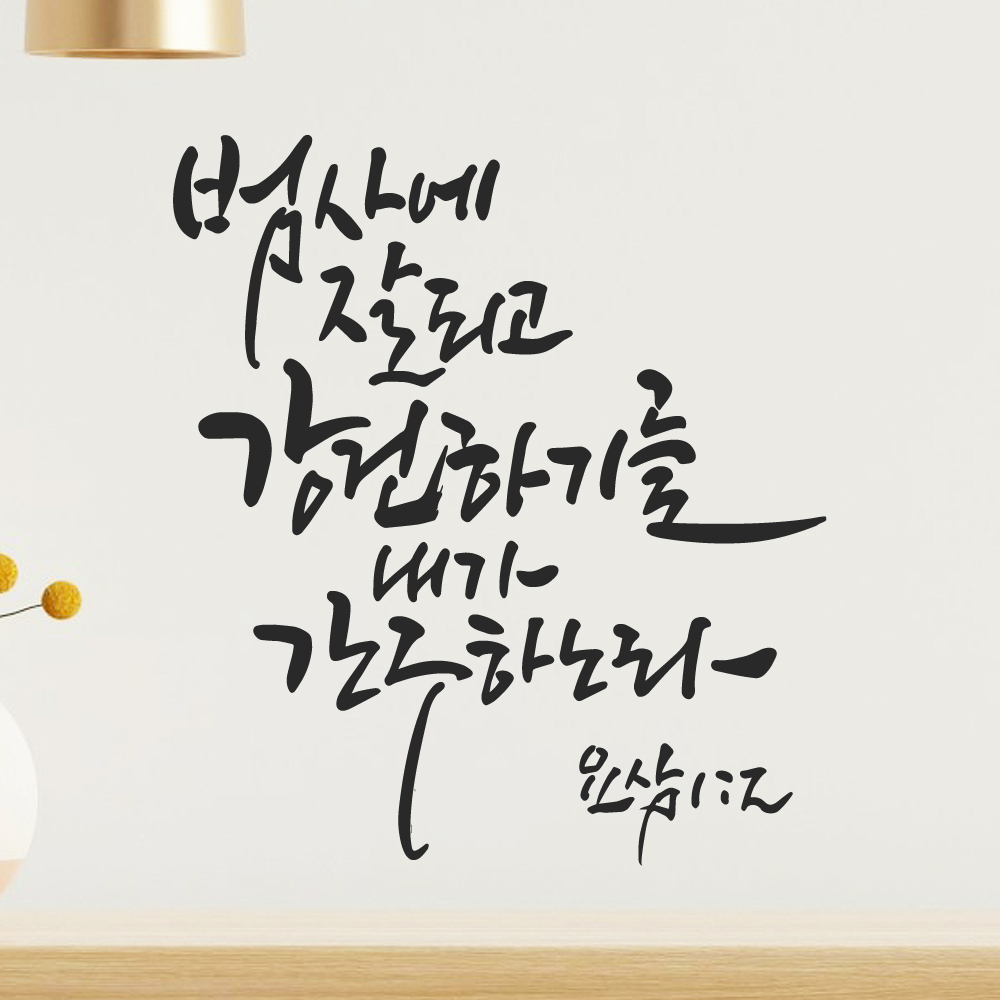 범사에
잘되고
강건하기를
내가
간구하노라
요삼 1:2